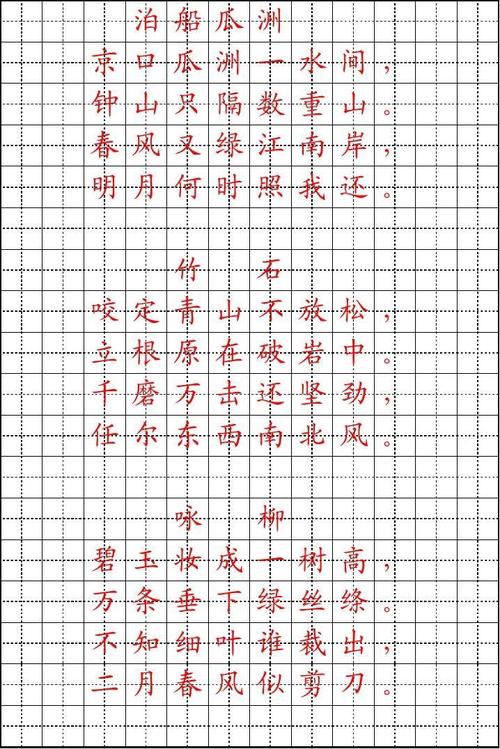 泊船瓜洲
京口瓜洲一水间，
钟山只隔数重山。
春风又绿江南岸，
明月何时照我还。
竹 石
咬定青山不放松，
立根原在破岩中。
千磨万击还坚劲，
任尔东西南北风。
咏 柳
碧玉妆成一树高，
万条垂下绿丝绦。
不知细叶谁裁出，
二月春风似剪刀。